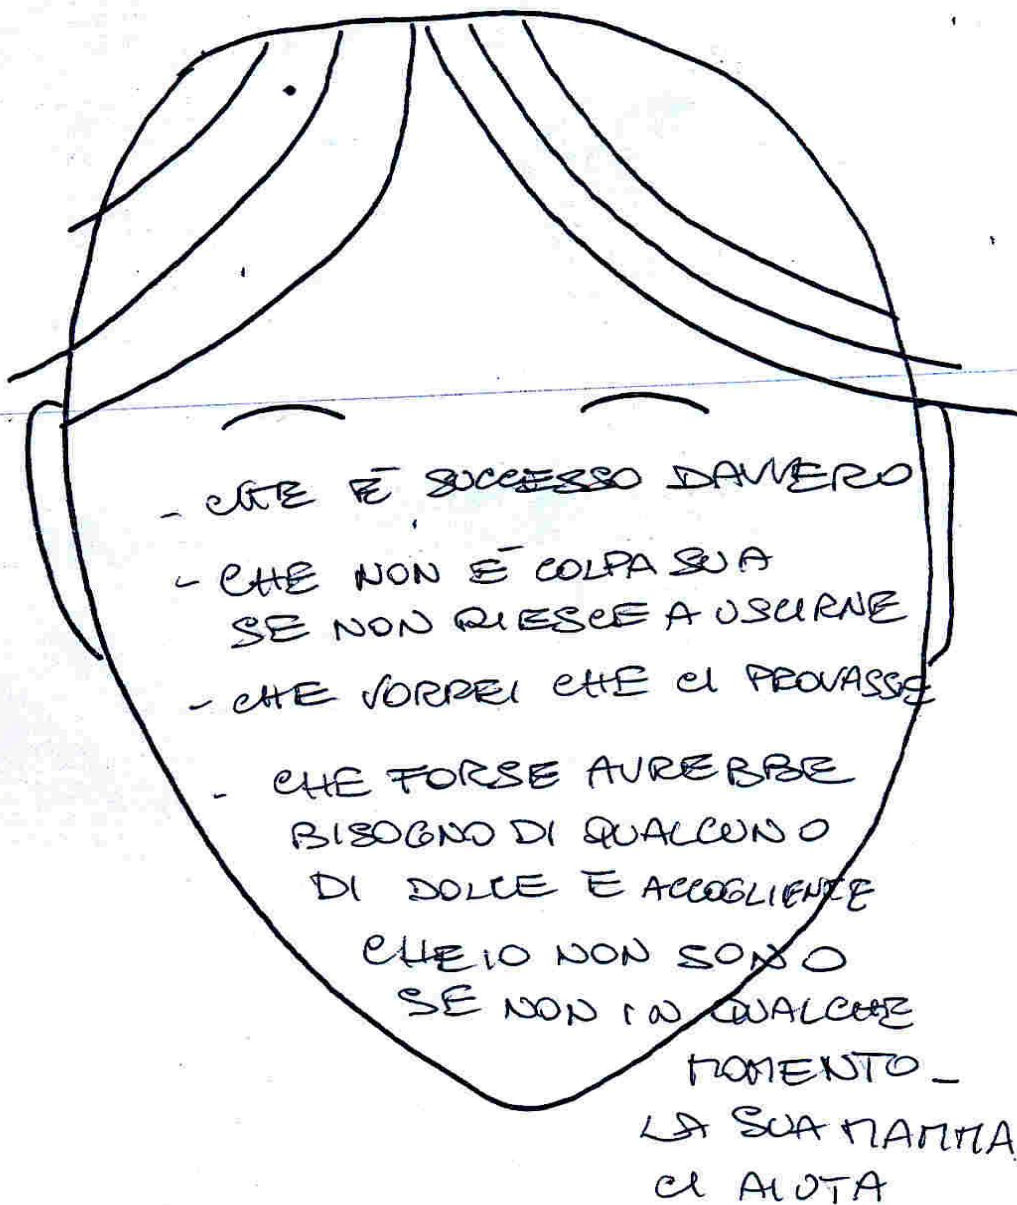 - CHE È SUCCESSO DAVVERO
- CHE NON È COLPA SUA
SE NON RIESCE A USCIRNE
- CHE VORREI CHE CI PROVASSE
- CHE FORSE AVREBBE
BISOGNO DI QUALCUNO
DI DOLCE E ACCOGLIENTE
CHE IO NON SONO
SE NON IN QUALCHE
MOMENTO -
LA SUA MAMMA
CI AIUTA